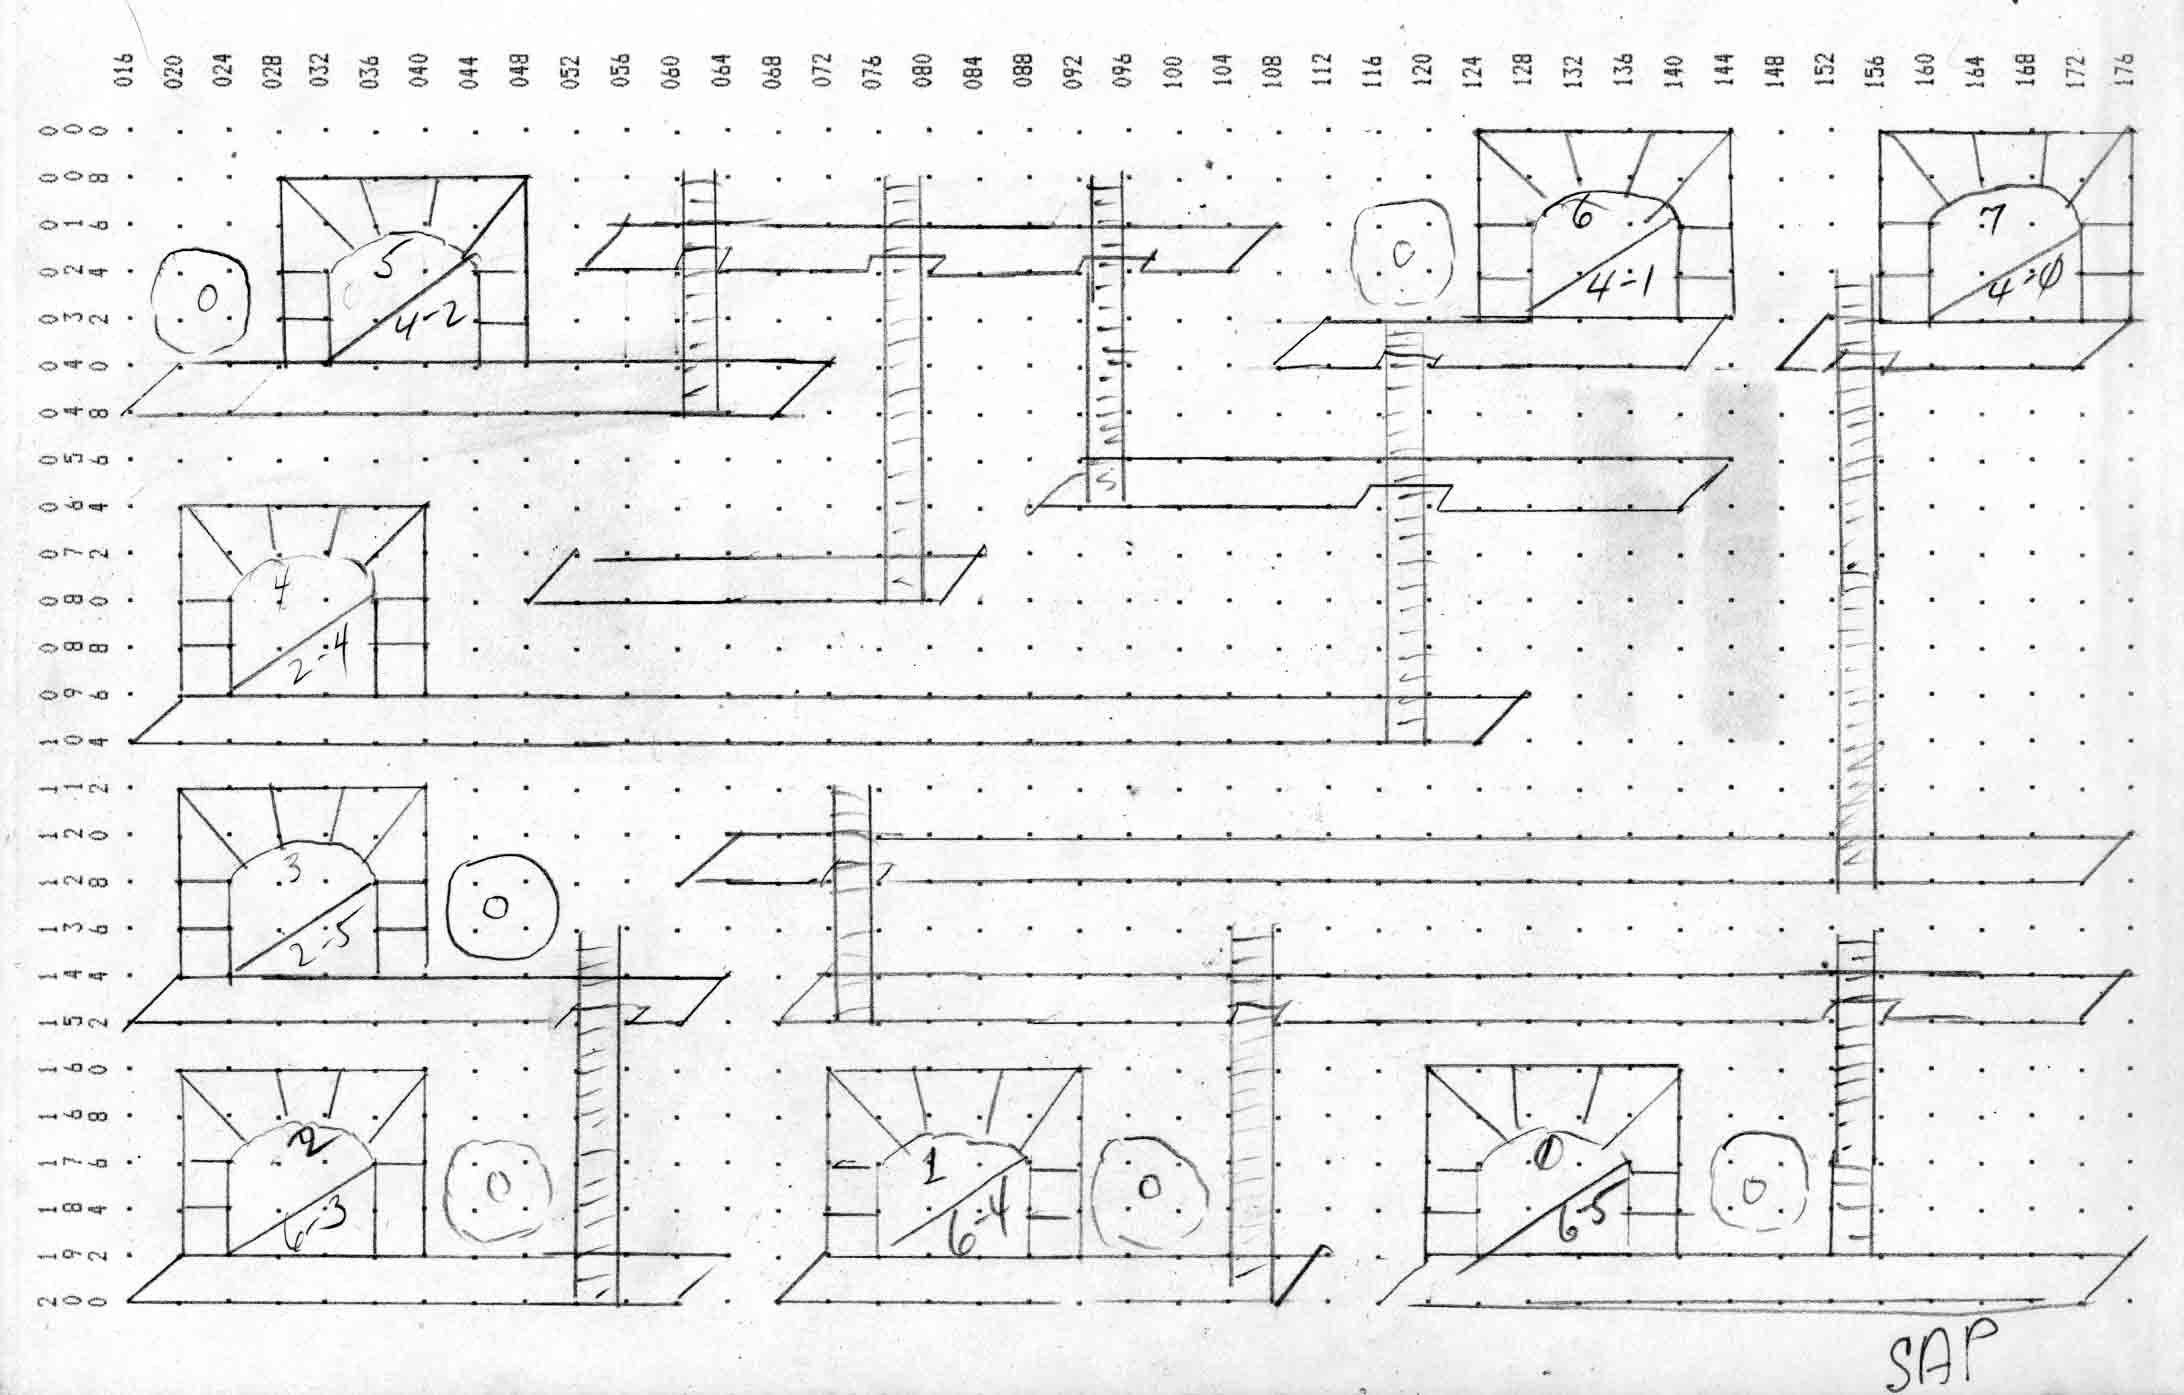 016 020 024 028 032 036 040 044 048 052 056 060 064 068 072 076 080 084 088 092 096 100 104 108 112 116 120 124 128 132 136 140 144 148 152 156 160 164 168 172 176
000
008
016
6 7
024
5
4-1 4-0
032
4-2
040
048
056
S
064
072
4
080
088
2-4
096
104
112
120
128
3
136
2-5
144
152
160
168
2
176
1 0
184
6-3 6-4 6-5
192
200
SAP